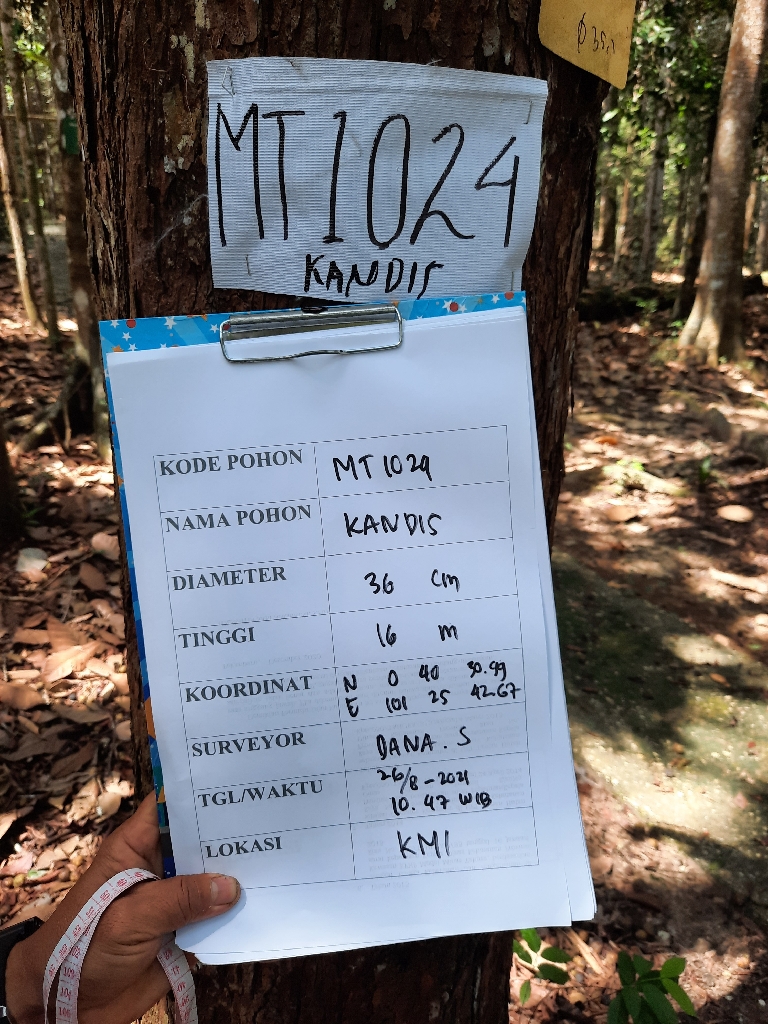 Ø 35,1
MT1024
KANDIS
KODE POHON MT 1024
NAMA POHON KANDIS
DIAMETER 36 cm
TINGGI 16 m
KOORDINAT N 0 40 30.99
E 101 25 42.67
SURVEYOR DANA. S
TGL/WAKTU 26/8-2021
10.47 WIB
LOKASI KMI